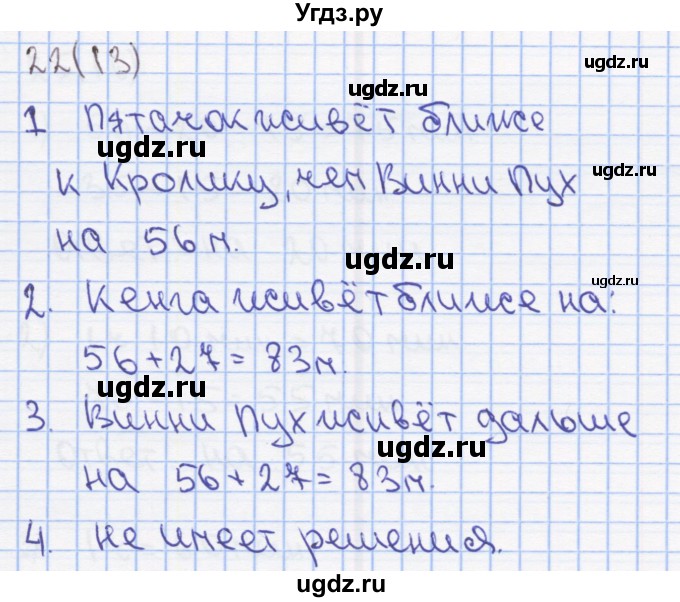 Угдз.ру
22(13)
ugdz.ru
1 Пятачок живёт ближе
ugdz.ru
ugdz.ru
к Кролику, чем Винни Пух
на 56 м.
ugdz.ru
2. Кенга живёт ближе на:
ugdz.ru
56 + 27 = 83 м.
ugdz.ru
3. Винни Пух живёт дальше
ugdz.ru
на 56 + 27 = 83 м.
4. не имеет решения.
ugdz.ru
ugdz.ru